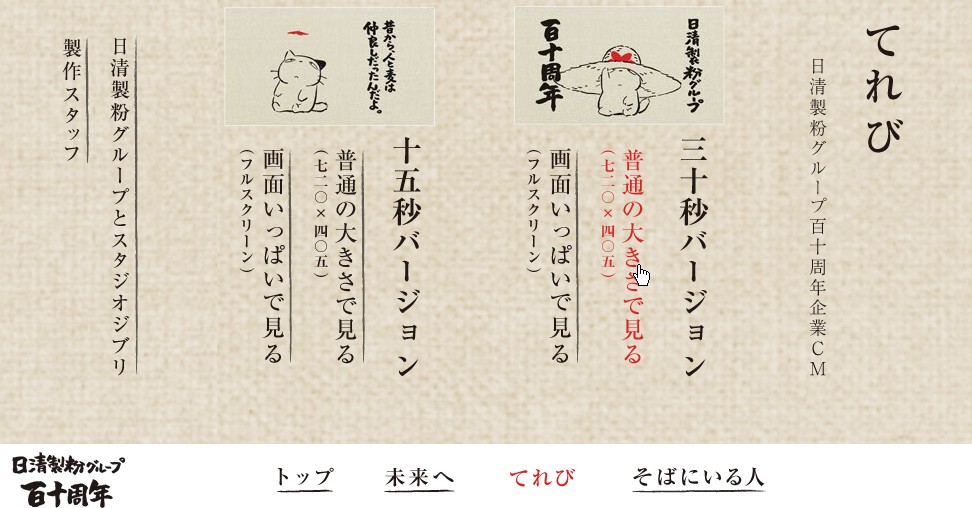 てれび
日清製粉グループ百十周年企業CM
日清製粉グループ
百十周年
三十秒バージョン
普通の大きさで見る
（七二〇×四〇五）
画面いっぱいで見る
（フルスクリーン）
昔から、人と麦は
仲良しだったんだよ。
十五秒バージョン
普通の大きさで見る
（七二〇×四〇五）
画面いっぱいで見る
（フルスクリーン）
日清製粉グループとスタジオジブリ
製作スタッフ
日清製粉グループ
百十周年
トップ
未来へ
てれび
そばにいる人